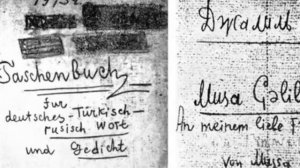 Taschenbuch
für
deutsches-Türkisch-
rusisch Wort
und Gedicht
Джалиль
Musa Gəlil
An meinem liebe
von Musa